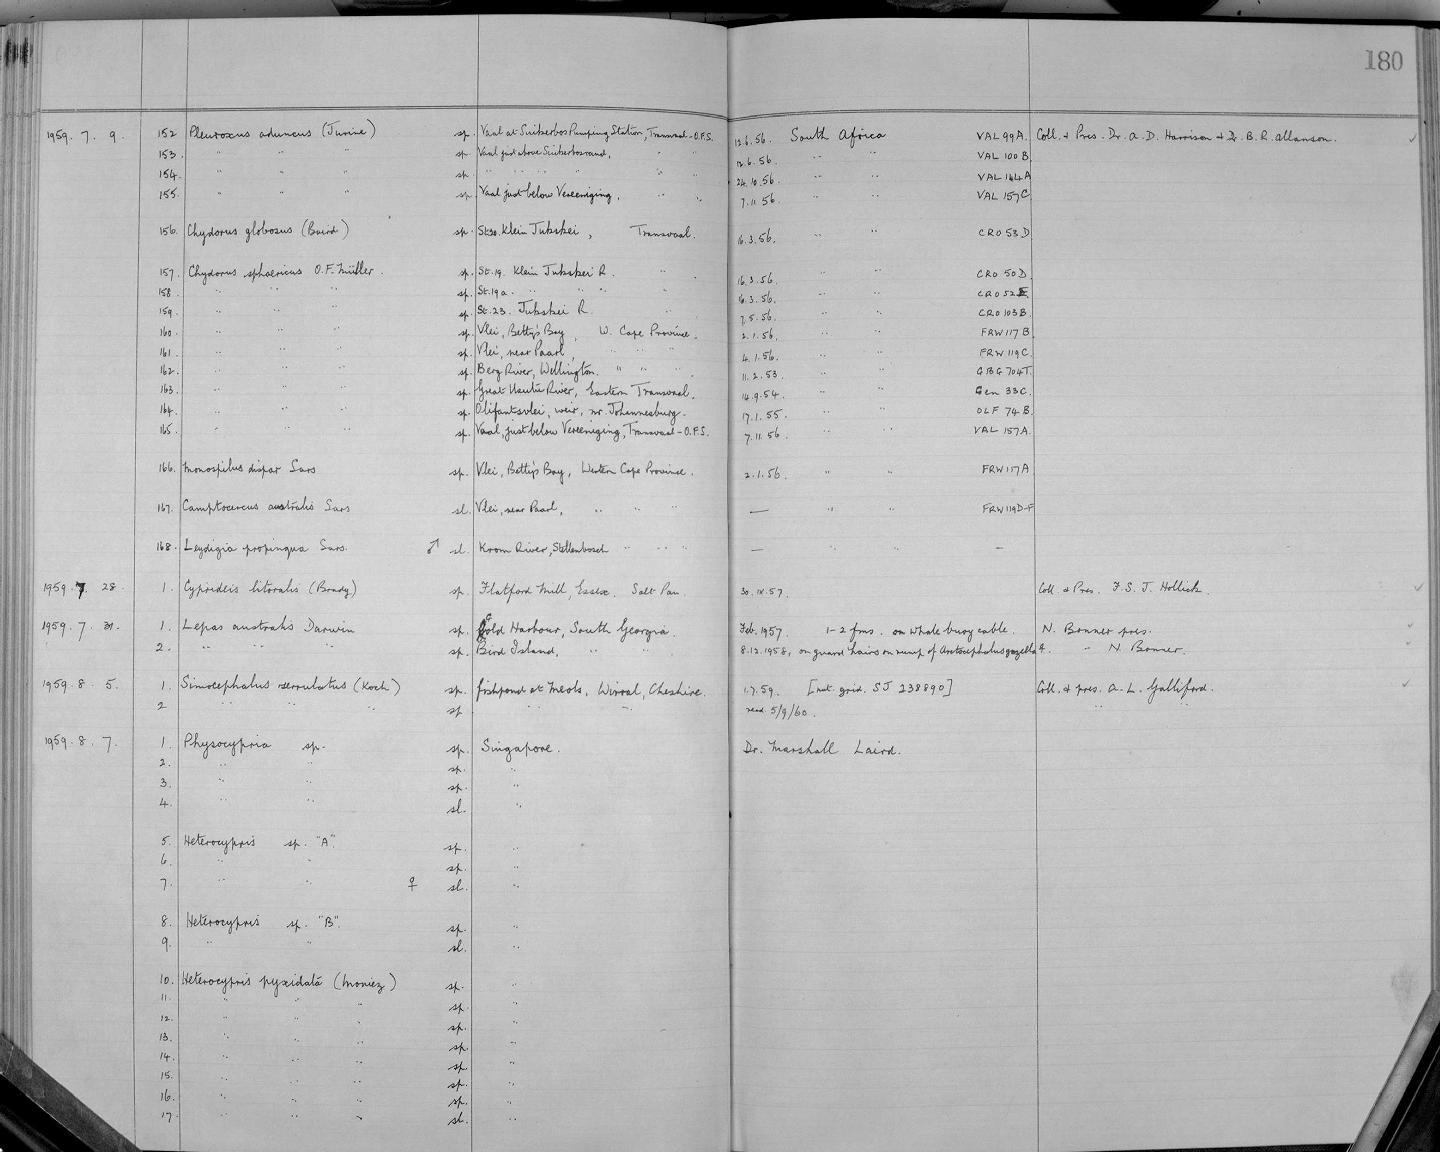 180
1959. 7. 9. 152 Pleuroxus aduncus (Jurine) sp. Vaal at Suikerbos Pumping Station, Transvaal-O.F.S. 12.6.56. South Africa VAL 99A. Coll. & Pres. Dr. A. D. Harrison & Dr. B. R. Allanson.
153. " " " sp. Vaal just above Suikerbosrand, " " 12.6.56 " " VAL 100B
154. " " " sp. " " " " " " 24.10.56 " " VAL 144A
155. " " " sp. Vaal just below Vereeniging, " " 7.11.56 " " VAL 157C
156. Chydorus globosus (Baird) sp. Klein Jukskei, Transvaal. 16.3.56. " " CRO 53D
157. Chydorus sphaericus O.F. Müller. sp. St.19. Klein Jukskei R. " 16.3.56. " " CRO 50D
158 " " " sp. St.19a. " " " " 16.3.56. " " CRO 52E
159. " " " sp. St.23. Jukskei R. " 7.5.56. " " CRO 103B
160. " " " sp. Vlei, Betty's Bay, W. Cape Province. 2.1.56. " " FRW 117B
161. " " " sp. Vlei, near Paarl, " " " 4.1.56. " " FRW 119C
162. " " " sp. Berg River, Wellington. " " " 11.2.53. " " GBG 704T.
163. " " " sp. Great Usutu River, Eastern Transvaal. 14.9.54. " " Gen 33C.
164. " " " sp. Olifantsvlei, weir, nr. Johannesburg. 17.1.55. " " OLF 74B.
165. " " " sp. Vaal, just below Vereeniging, Transvaal-O.F.S. 7.11.56 " " VAL 157A.
166. Monospilus dispar Sars sp. Vlei, Betty's Bay, Western Cape Province. 2.1.56. " " FRW 117A
167. Camptocercus australis Sars sl. Vlei, near Paarl, " " " — " " FRW 119D-F
168. Leydigia propinqua Sars. ♂ sl. Krom River, Stellenbosch " " " — " " —
1959. 7. 28. 1. Cyprideis litoralis (Brady) sp. Flatford Mill, Essex. Salt Pan. 30.IX.57. Coll. & Pres. F.S.J. Hollick
1959. 7. 31. 1. Lepas australis Darwin sp. Cold Harbour, South Georgia. Feb. 1957. 1-2 fms. on whale buoy cable. N. Bonner pres.
2. " " " sp. Bird Island, " " 8.12.1958, on guard hairs on rump of Arctocephalus gazella ♀. " N. Bonner.
1959. 8. 5. 1. Simocephalus serrulatus (Koch) sp. fishpond at Meols, Wirral, Cheshire. 1.7.59. [nat. grid. SJ 238890] Coll. & pres. A. L. Galliford.
2 " " " sp. " " read. 5/9/60. " "
1959. 8. 7. 1. Physocypria sp. sp. Singapore. Dr. Marshall Laird.
2. " " sp. "
3. " " sp. "
4. " " sl. "
5. Heterocypris sp. "A". sp. "
6. " " sp. "
7. " " ♀ sl. "
8. Heterocypris sp. "B". sp. "
9. " " sl. "
10. Heterocypris pyxidata (Moniez) sp. "
11. " " " sp. "
12. " " " sp. "
13. " " " sp. "
14. " " " sp. "
15. " " " sp. "
16. " " " sp. "
17. " " " sl. "